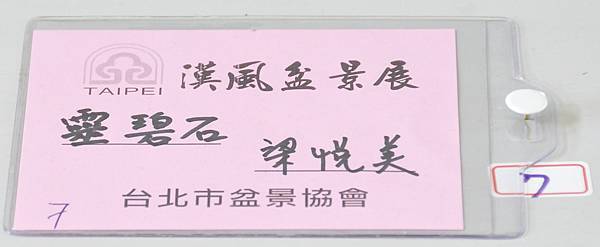 TAIPEI 漢風盆景展
靈碧石 梁悅美
台北市盆景協會
7
7